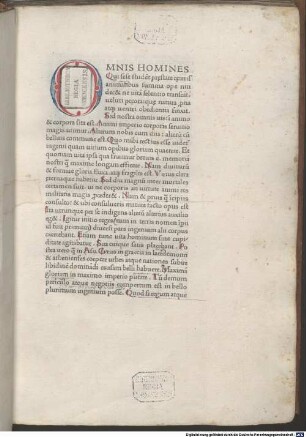 OMNIS HOMINES
Qui sese student
animalibus summa ope niti
decet ne uitã silentio transeãt
ueluti pecora que natura prona
atque uentri obedientia finxit.
Sed nostra omnis uis ĩ animo
& corpore sita est. Animi imperio corporis seruitio
magis utimur. Alterum nobis cum diis: alterũ cũ
beluis commune est. Quo mihi rectius esse uidetur
ingenii quam uirium opibus gloriam querere. Et
quoniam uita ipsa qua fruimur breuis ẽ. memoriã
nostri q̃ maxime longam efficere. Nam diuitiarũ
& forme gloria fluxa atque fragilis est. Virtus clara
eternaque habetur. Sed diu magnũ inter mortales
certamen fuit. ui ne corporis an uirtute animi res
militaris magis procederet. Nam & prius q̃ ĩcipias
consulto: & ubi consulueris mature facto opus est
Ita utrunque per se indigens alterũ alterius auxilio
eget. Igitur initio reges: nam in terris nomen imperii
id fuit primum: diuersi pars ingenium alii corpus
exercebant. Etiam tunc uita hominum sine cupi
ditate agitabatur. Sua cuique satis placebant. Po
stea uero q̃ in Asia Cyrus in grecia lacedemonii
& athenienses cepere urbes atque nationes subigere
libidinẽ dominandi causam belli habere. Maxumã
gloriam in maximo imperio putare. Tũ demum
periculo atque negociis compertum est in bello
plurimum ingenium posse. Quod si regum atque
BIBLIOTHECA
REGIA
MONACENSIS